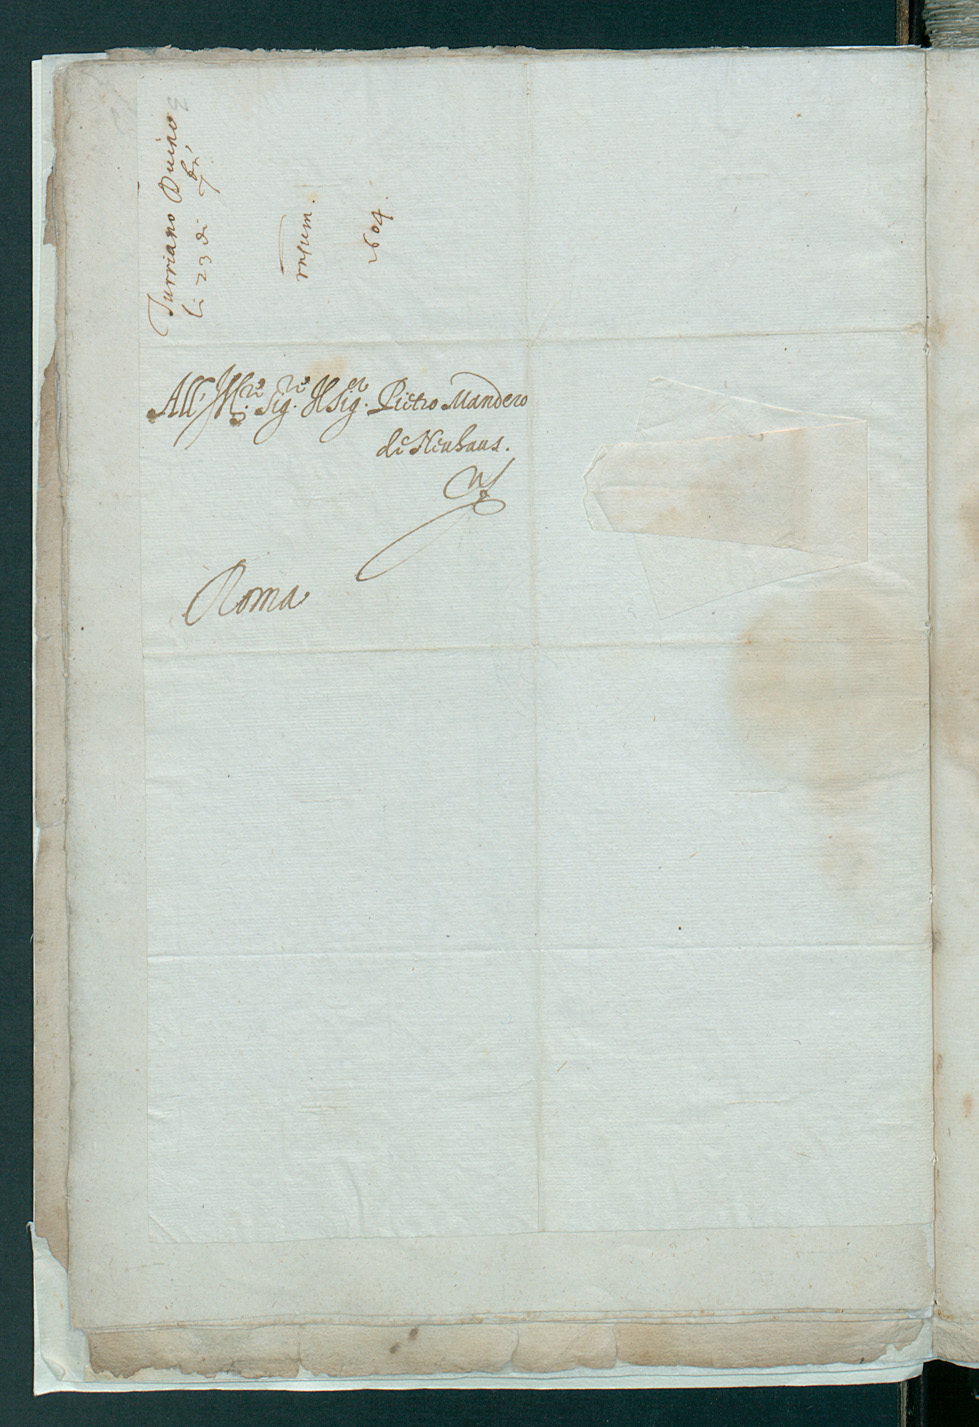 Turriano Duino
li 23 di 7br̃
resum.
1604.
All' Ill.re Sig.re Il Sig.r Pietro Mandero
di Neuhaus.
Roma